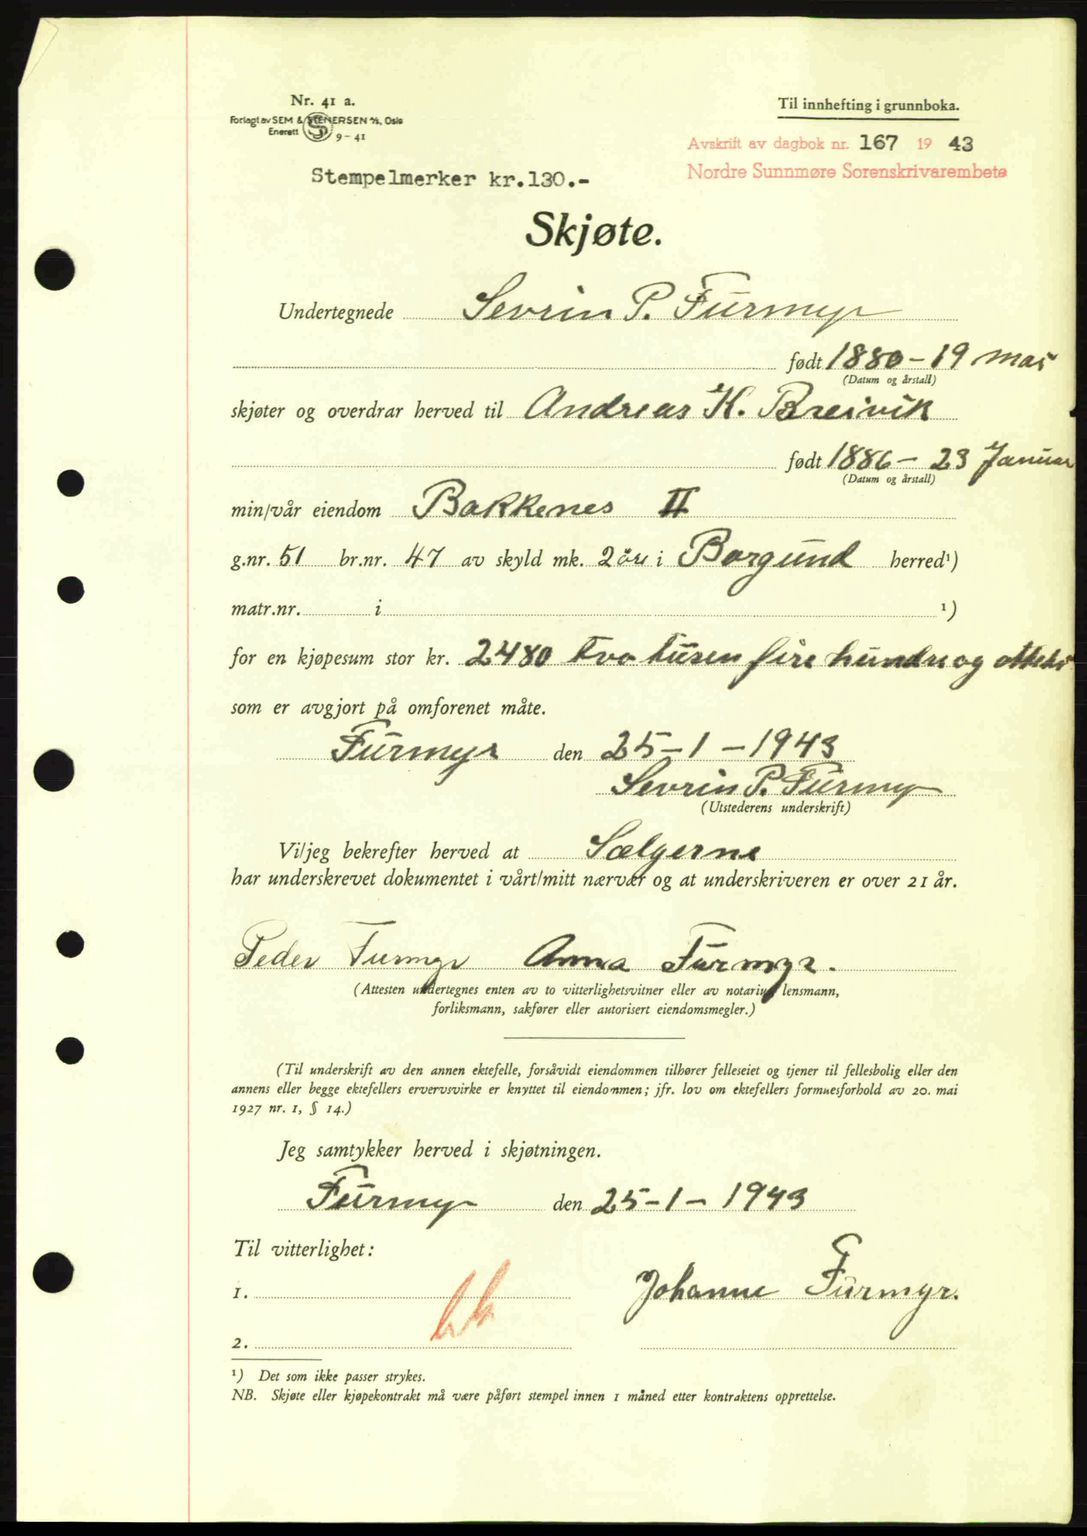 Nr. 41 a.
Forlagt av SEM & STENERSEN A/S, Oslo
Enerett 9-41
Til innhefting i grunnboka.
Avskrift av dagbok nr. 167 19 43
Nordre Sunnmøre Sorenskrivarembete
Stempelmerker kr.130.-
Skjøte.
Undertegnede Sevrin P. Furmyr
født 1880-19 mai
(Datum og årstall)
skjøter og overdrar herved til Andreas K. Breivik
født 1886- 23 Januar
(Datum og årstall)
min/vår eiendom Bakkenes II
g.nr. 51 br.nr. 47 av skyld mk. 2 øre i Borgund herred¹)
matr.nr. i ¹)
for en kjøpesum stor kr. 2480 tvo tusen fire hundre og otteti
som er avgjort på omforenet måte.
Furmyr den 25-1-1943
Sevrin P. Furmyr
(Utstederens underskrift)
Vi/jeg bekrefter herved at Sælgerne
har underskrevet dokumentet i vårt/mitt nærvær og at underskriveren er over 21 år.
Peder Furmyr Anna Furmyr.
(Attesten undertegnes enten av to vitterlighetsvitner eller av notarius, lensmann,
forliksmann, sakfører eller autorisert eiendomsmegler.)
(Til underskrift av den annen ektefelle, forsåvidt eiendommen tilhører felleseiet og tjener til fellesbolig eller den
annens eller begge ektefellers ervervsvirke er knyttet til eiendommen; jfr. lov om ektefellers formuesforhold av 20. mai
1927 nr. 1, § 14.)
Jeg samtykker herved i skjøtningen.
Furmyr den 25-1-1943
Til vitterlighet:
1. Johanne Furmyr.
2.
¹) Det som ikke passer strykes.
NB. Skjøte eller kjøpekontrakt må være påført stempel innen 1 måned etter kontraktens opprettelse.